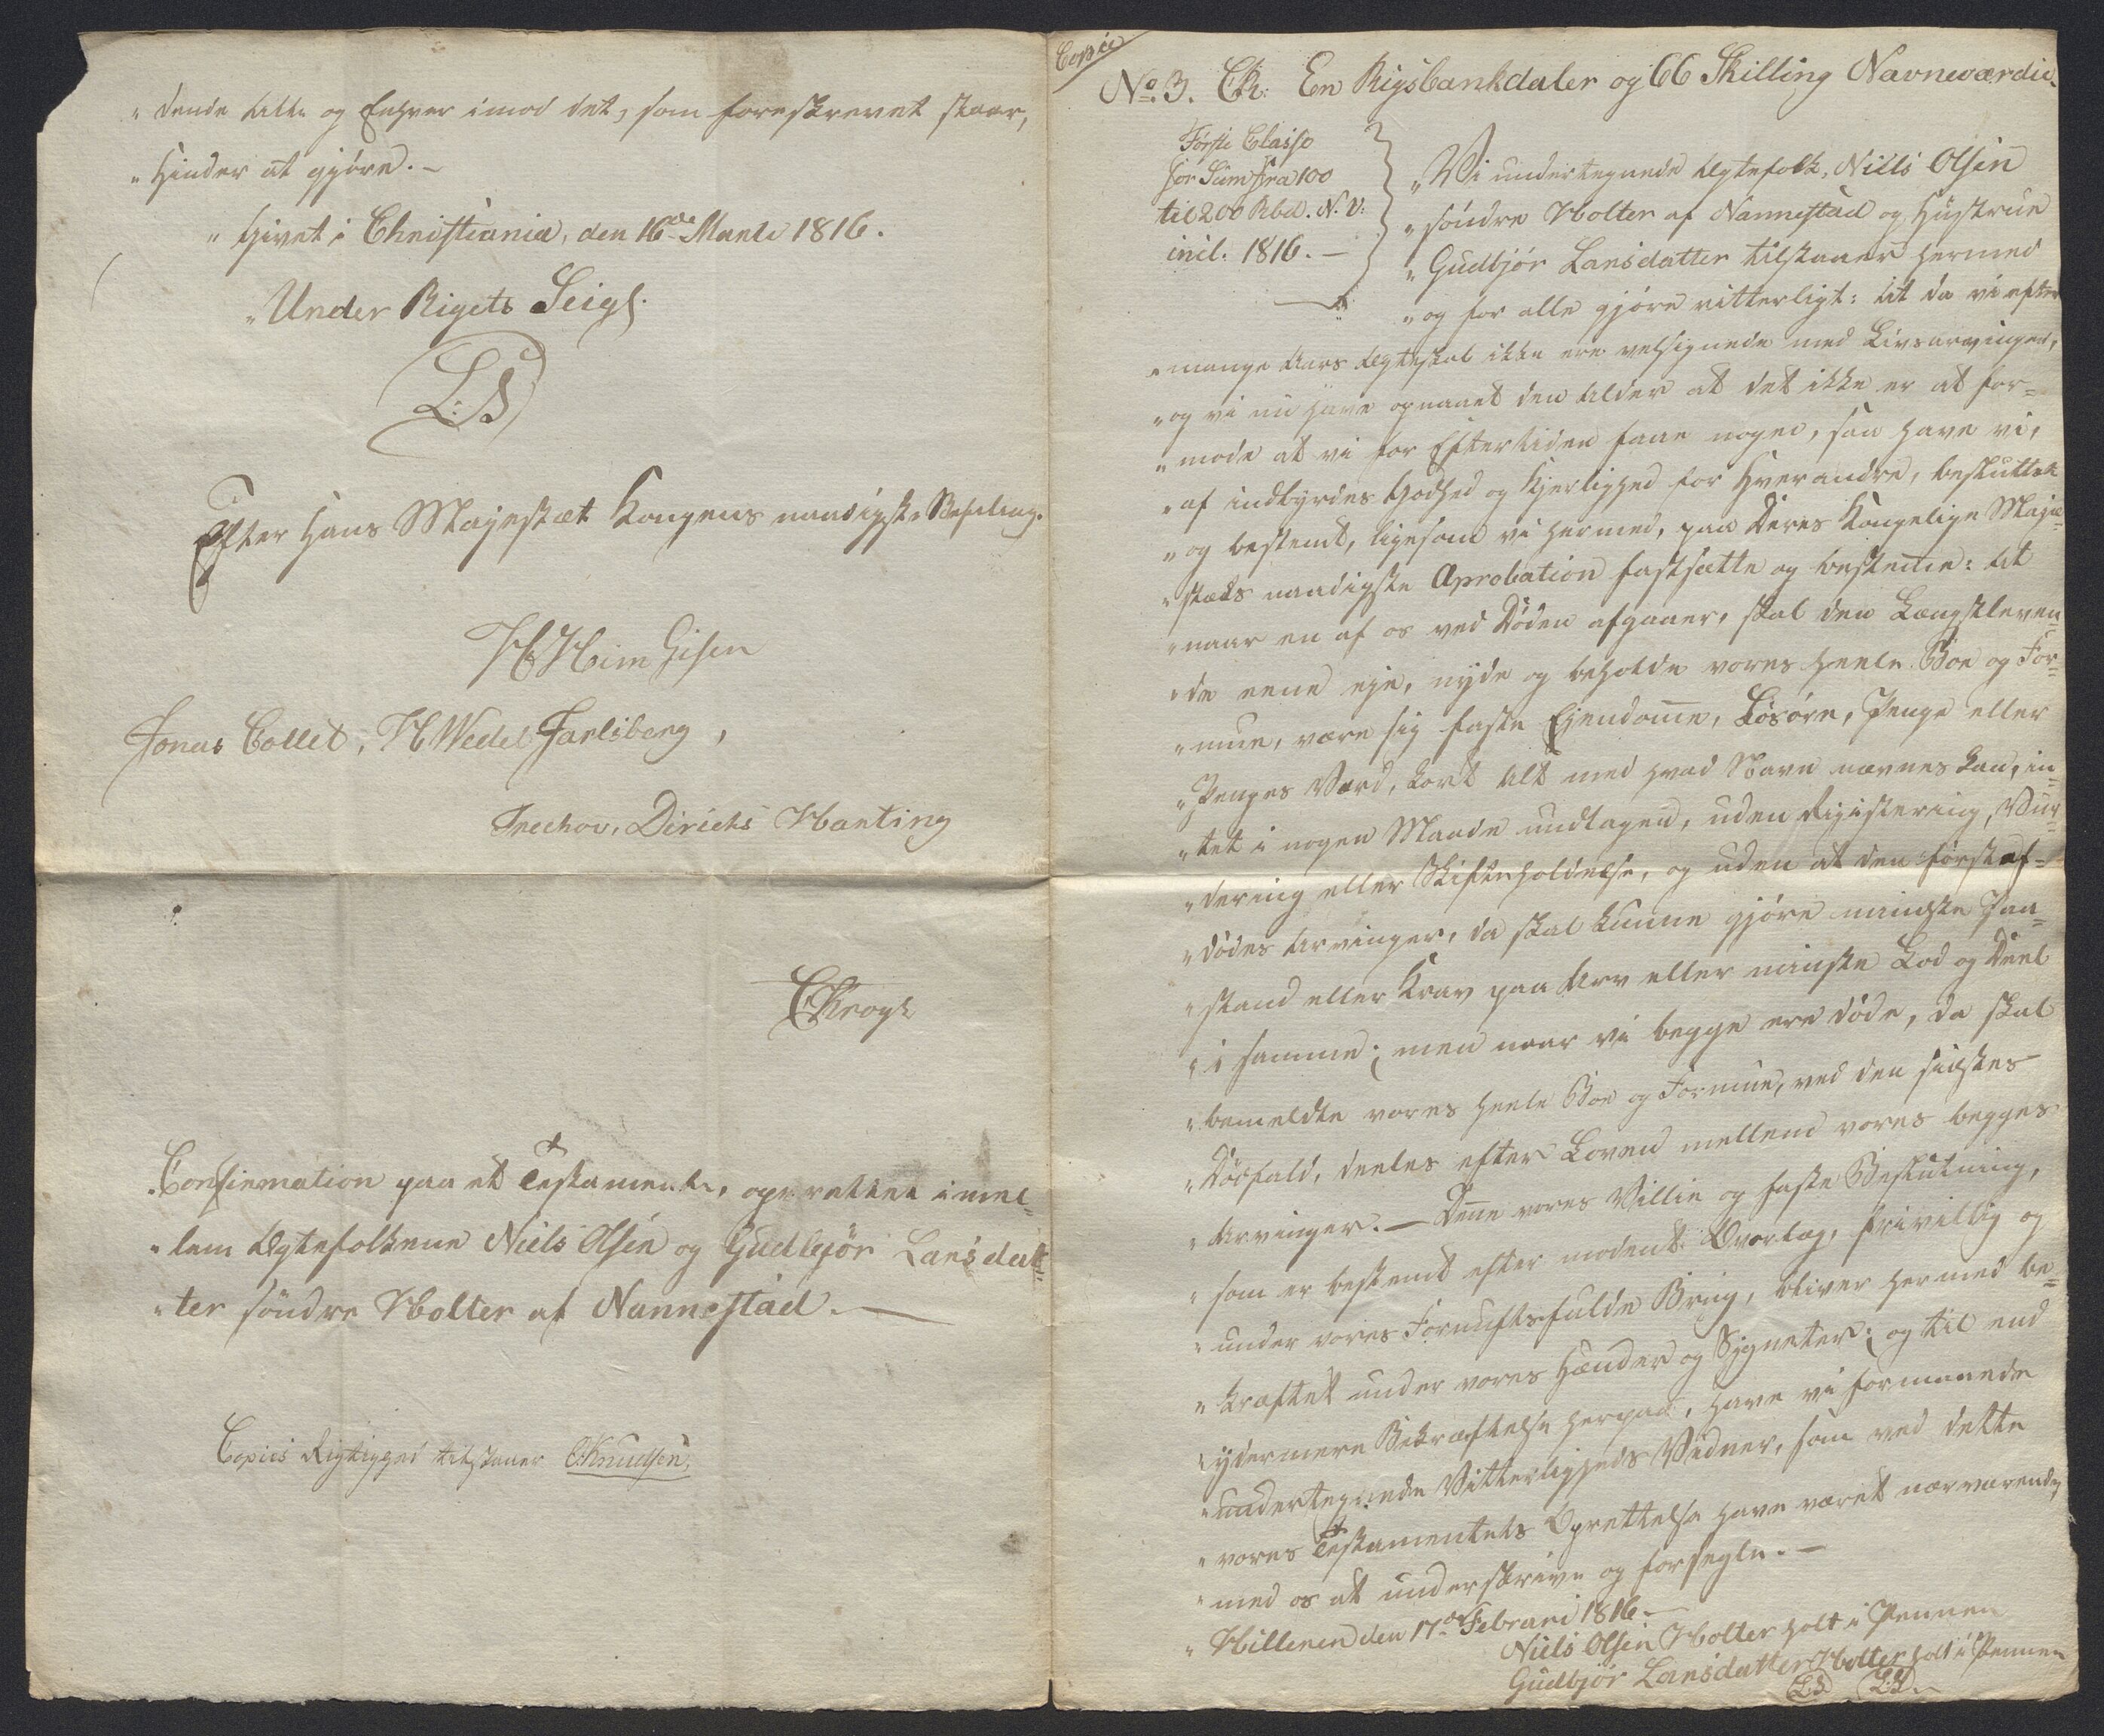 „dende eller og Enhver imod det, som foreskrevet staar,
„Hinder at gjøre.–
„Givet i Christiania, den 16de Martii 1816.
„Under Rigets Seigl.
L.S.
Efter Hans Majestæt Kongens naadigste Befaling.
Jonas Collet, H Wedel Jarlsberg,
Treschow, Diriks Hanting
C Krogh
„Confirmation paa et Testamente, oprettet imel=
„lem Ægtefolkene Niels Olsen og Gudbjør Larsdat=
„ter søndre Holter af Nannestad.—
Copiis Rigtighed tilstaaer O. Knudsen.
Copie
No. 3. Ctr: En Rigsbankdaler og 66 Skilling Navneværdie.
Første Classe
for Sum fra 100
til 200 Rbd. N.V:
incl. 1816.—
„Vi undertegnede Ægtefolk, Niels Olsen
„søndre Holter af Nannestad og Hustrue
„Gudbjør Larsdatter tilstaaer hermed
„og for alle gjøre vitterligt: At da vi efter
„mange Aars Ægteskab ikke ere velsignede med Livsarvinger,
„og vi nu have opnaaet den Alder at det ikke er at for=
„mode at vi for Eftertiden faae nogen, saa have vi,
„af indbyrdes Godhed og Kjerlighed for Hverandre, besluttet
„og bestemt, ligesom vi hermed, paa Deres Kongelige Maje=
„stæts naadigste Aprobation fastsætte og bestemme: At
„naar en af os ved Døden afgaaer, skal den Længstleven=
„de eene eje, nyde og beholde vores heele Boe og For=
„mue, være sig faste Ejendomme, Løsøre, Penge eller
„Penges Værd, kort Alt med hvad Navn nævnes kan, in=
„tet i nogen Maade undtagen, uden Registering, Vur=
„dering eller Skifteholdelse, og uden at den først af=
„dødes Arvinger, da skal kunne gjøre mindste Paa=
„stand eller Krav paa Arv eller minste Lod og Deel
„i samme; men naar vi begge ere døde, da skal
„bemeldte vores heele Boe og Formue, ved den sidstes
„Dødfald, deeles efter Loven mellem vores begges
„Arvinger.— Denne vores Villie og faste Beslutning,
„som er bestemt efter modent Overlæg, frivillig og
„under vores Fornuftsfulde Brug, bliver hermed be=
„kræftet under vores Hænder og Signeter; og til end
„ydermere Bekræftelse herpaa, have vi formaaede
„undertegnede Vitterligheds Vidner, som ved dette
„vores Testamentets Oprettelse have været nærværende,
„med os at underskrive og forsegle.—
„Hilleren den 17de Februari 1816.—
Niels Olsen Holter holt i Pennen
Gudbjør Larsdatter Holter holt i Pennen
L.S. L.S.